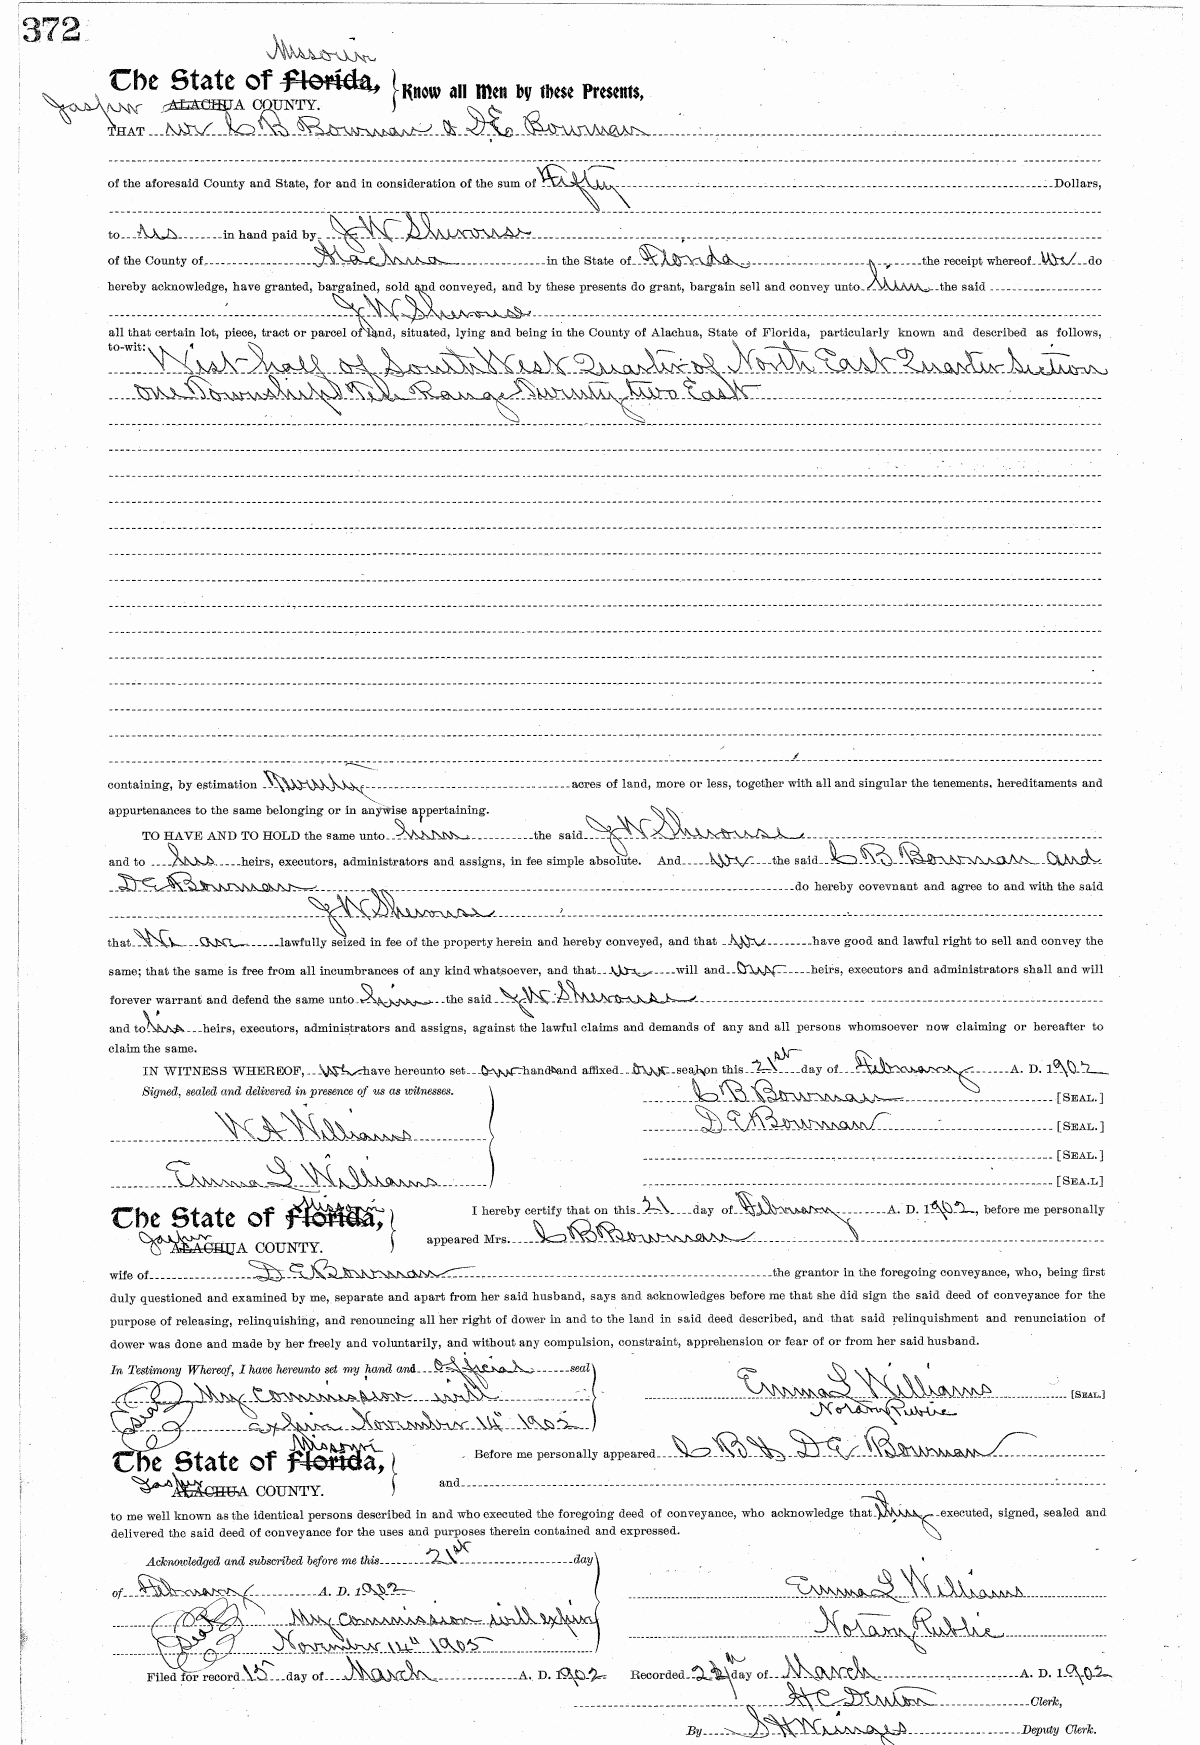 372
Missouri
The State of Florida, Know all Men by these Presents,
Jasper ALACHUA COUNTY.
THAT we C B Bowman & D E Bowman
of the aforesaid County and State, for and in consideration of the sum of Fifty Dollars,
to us in hand paid by J W Sherouse
of the County of Alachua in the State of Florida the receipt whereof we do
hereby acknowledge, have granted, bargained, sold and conveyed, and by these presents do grant, bargain sell and convey unto him the said
J W Sherouse
all that certain lot, piece, tract or parcel of land, situated, lying and being in the County of Alachua, State of Florida, particularly known and described as follows,
to-wit: West half of South West Quarter of North East Quarter Section
one Township Ten Range Twenty two East
containing, by estimation Twenty acres of land, more or less, together with all and singular the tenements, hereditaments and
appurtenances to the same belonging or in anywise appertaining.
TO HAVE AND TO HOLD the same unto him the said J W Sherouse
and to his heirs, executors, administrators and assigns, in fee simple absolute. And we the said C B Bowman and
D E Bowman do hereby covevnant and agree to and with the said
J W Sherouse
that We are lawfully seized in fee of the property herein and hereby conveyed, and that we have good and lawful right to sell and convey the
same; that the same is free from all incumbrances of any kind whatsoever, and that we will and our heirs, executors and administrators shall and will
forever warrant and defend the same unto him the said J W Sherouse
and to his heirs, executors, administrators and assigns, against the lawful claims and demands of any and all persons whomsoever now claiming or hereafter to
claim the same.
IN WITNESS WHEREOF, We have hereunto set our hands and affixed our seals on this 21st day of February A. D. 1902
Signed, sealed and delivered in presence of us as witnesses. C B Bowman [SEAL.]
W A Williams D E Bowman [SEAL.]
[SEAL.]
Emma L Williams [SEA.L]
Missouri
The State of Florida, I hereby certify that on this 21 day of February A. D. 1902, before me personally
Jasper ALACHUA COUNTY. appeared Mrs. C B Bowman
wife of D E Bowman the grantor in the foregoing conveyance, who, being first
duly questioned and examined by me, separate and apart from her said husband, says and acknowledges before me that she did sign the said deed of conveyance for the
purpose of releasing, relinquishing, and renouncing all her right of dower in and to the land in said deed described, and that said relinquishment and renunciation of
dower was done and made by her freely and voluntarily, and without any compulsion, constraint, apprehension or fear of or from her said husband.
In Testimony Whereof, I have hereunto set my hand and official seal
Seal My Commission will Emma L Williams [SEAL]
expire November 14" 1905 Notary Public
Missouri
The State of Florida, Before me personally appeared C B & D E Bowman
Jasper ALACHUA COUNTY. and
to me well known as the identical persons described in and who executed the foregoing deed of conveyance, who acknowledge that they executed, signed, sealed and
delivered the said deed of conveyance for the uses and purposes therein contained and expressed.
Acknowledged and subscribed before me this 21st day
of February A. D. 1902 Emma L Williams
Seal My commission will expire Notary Public
November 14" 1905
Filed for record 15 day of March A. D. 1902 Recorded day of March A. D. 1902
H C Denton Clerk,
By Deputy Clerk.